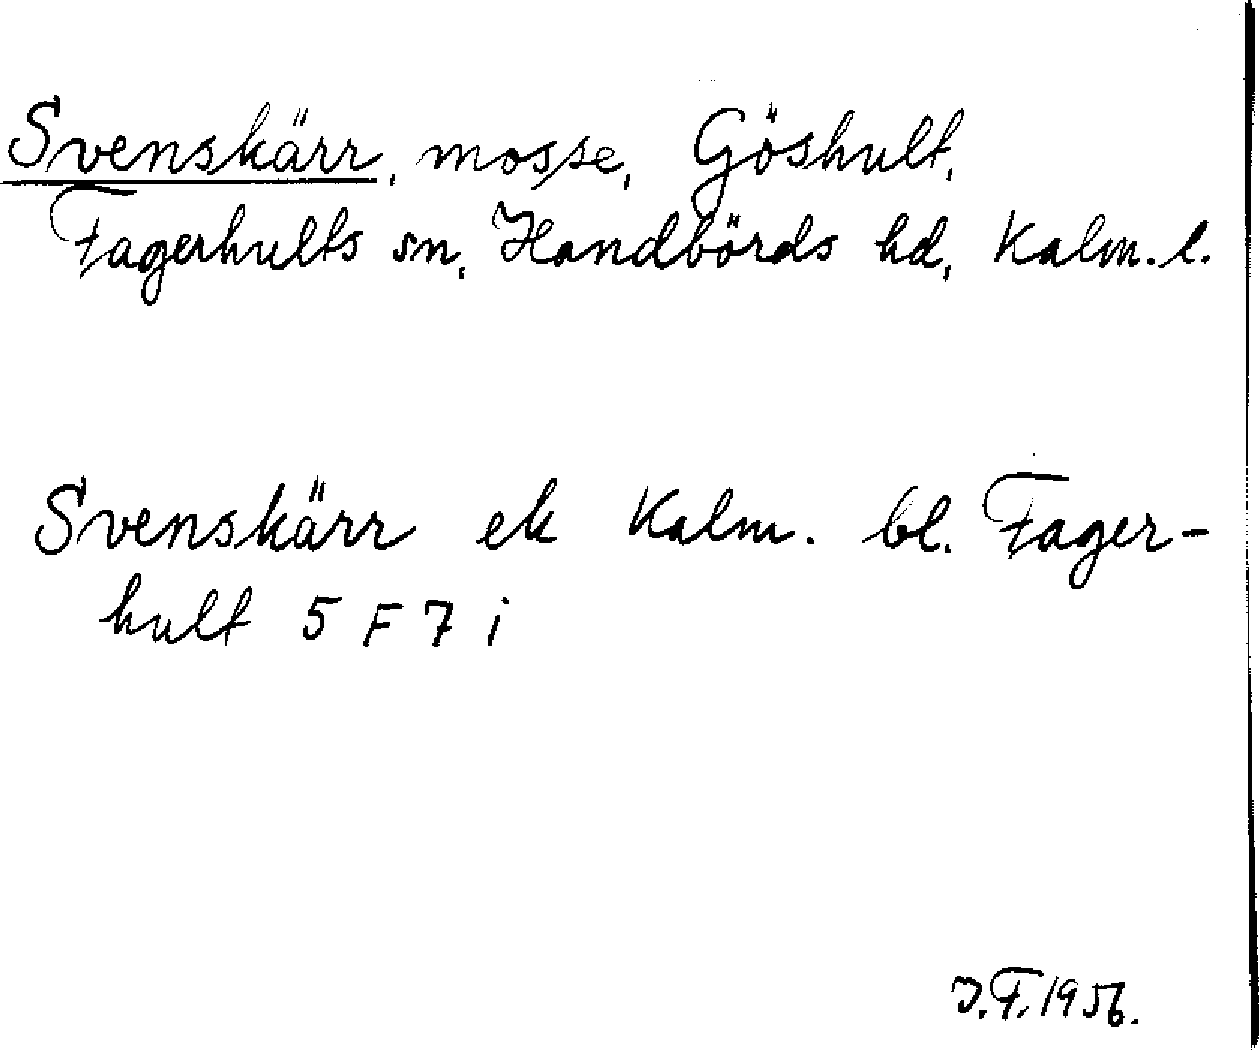 Svenskärr, mosse, Göshult,
Fagerhults sn, Handbörds hd, Kalm. l.
Svenskärr ek Kalm. bl. Fager-
hult 5 F 7 i
J.F. 1956.